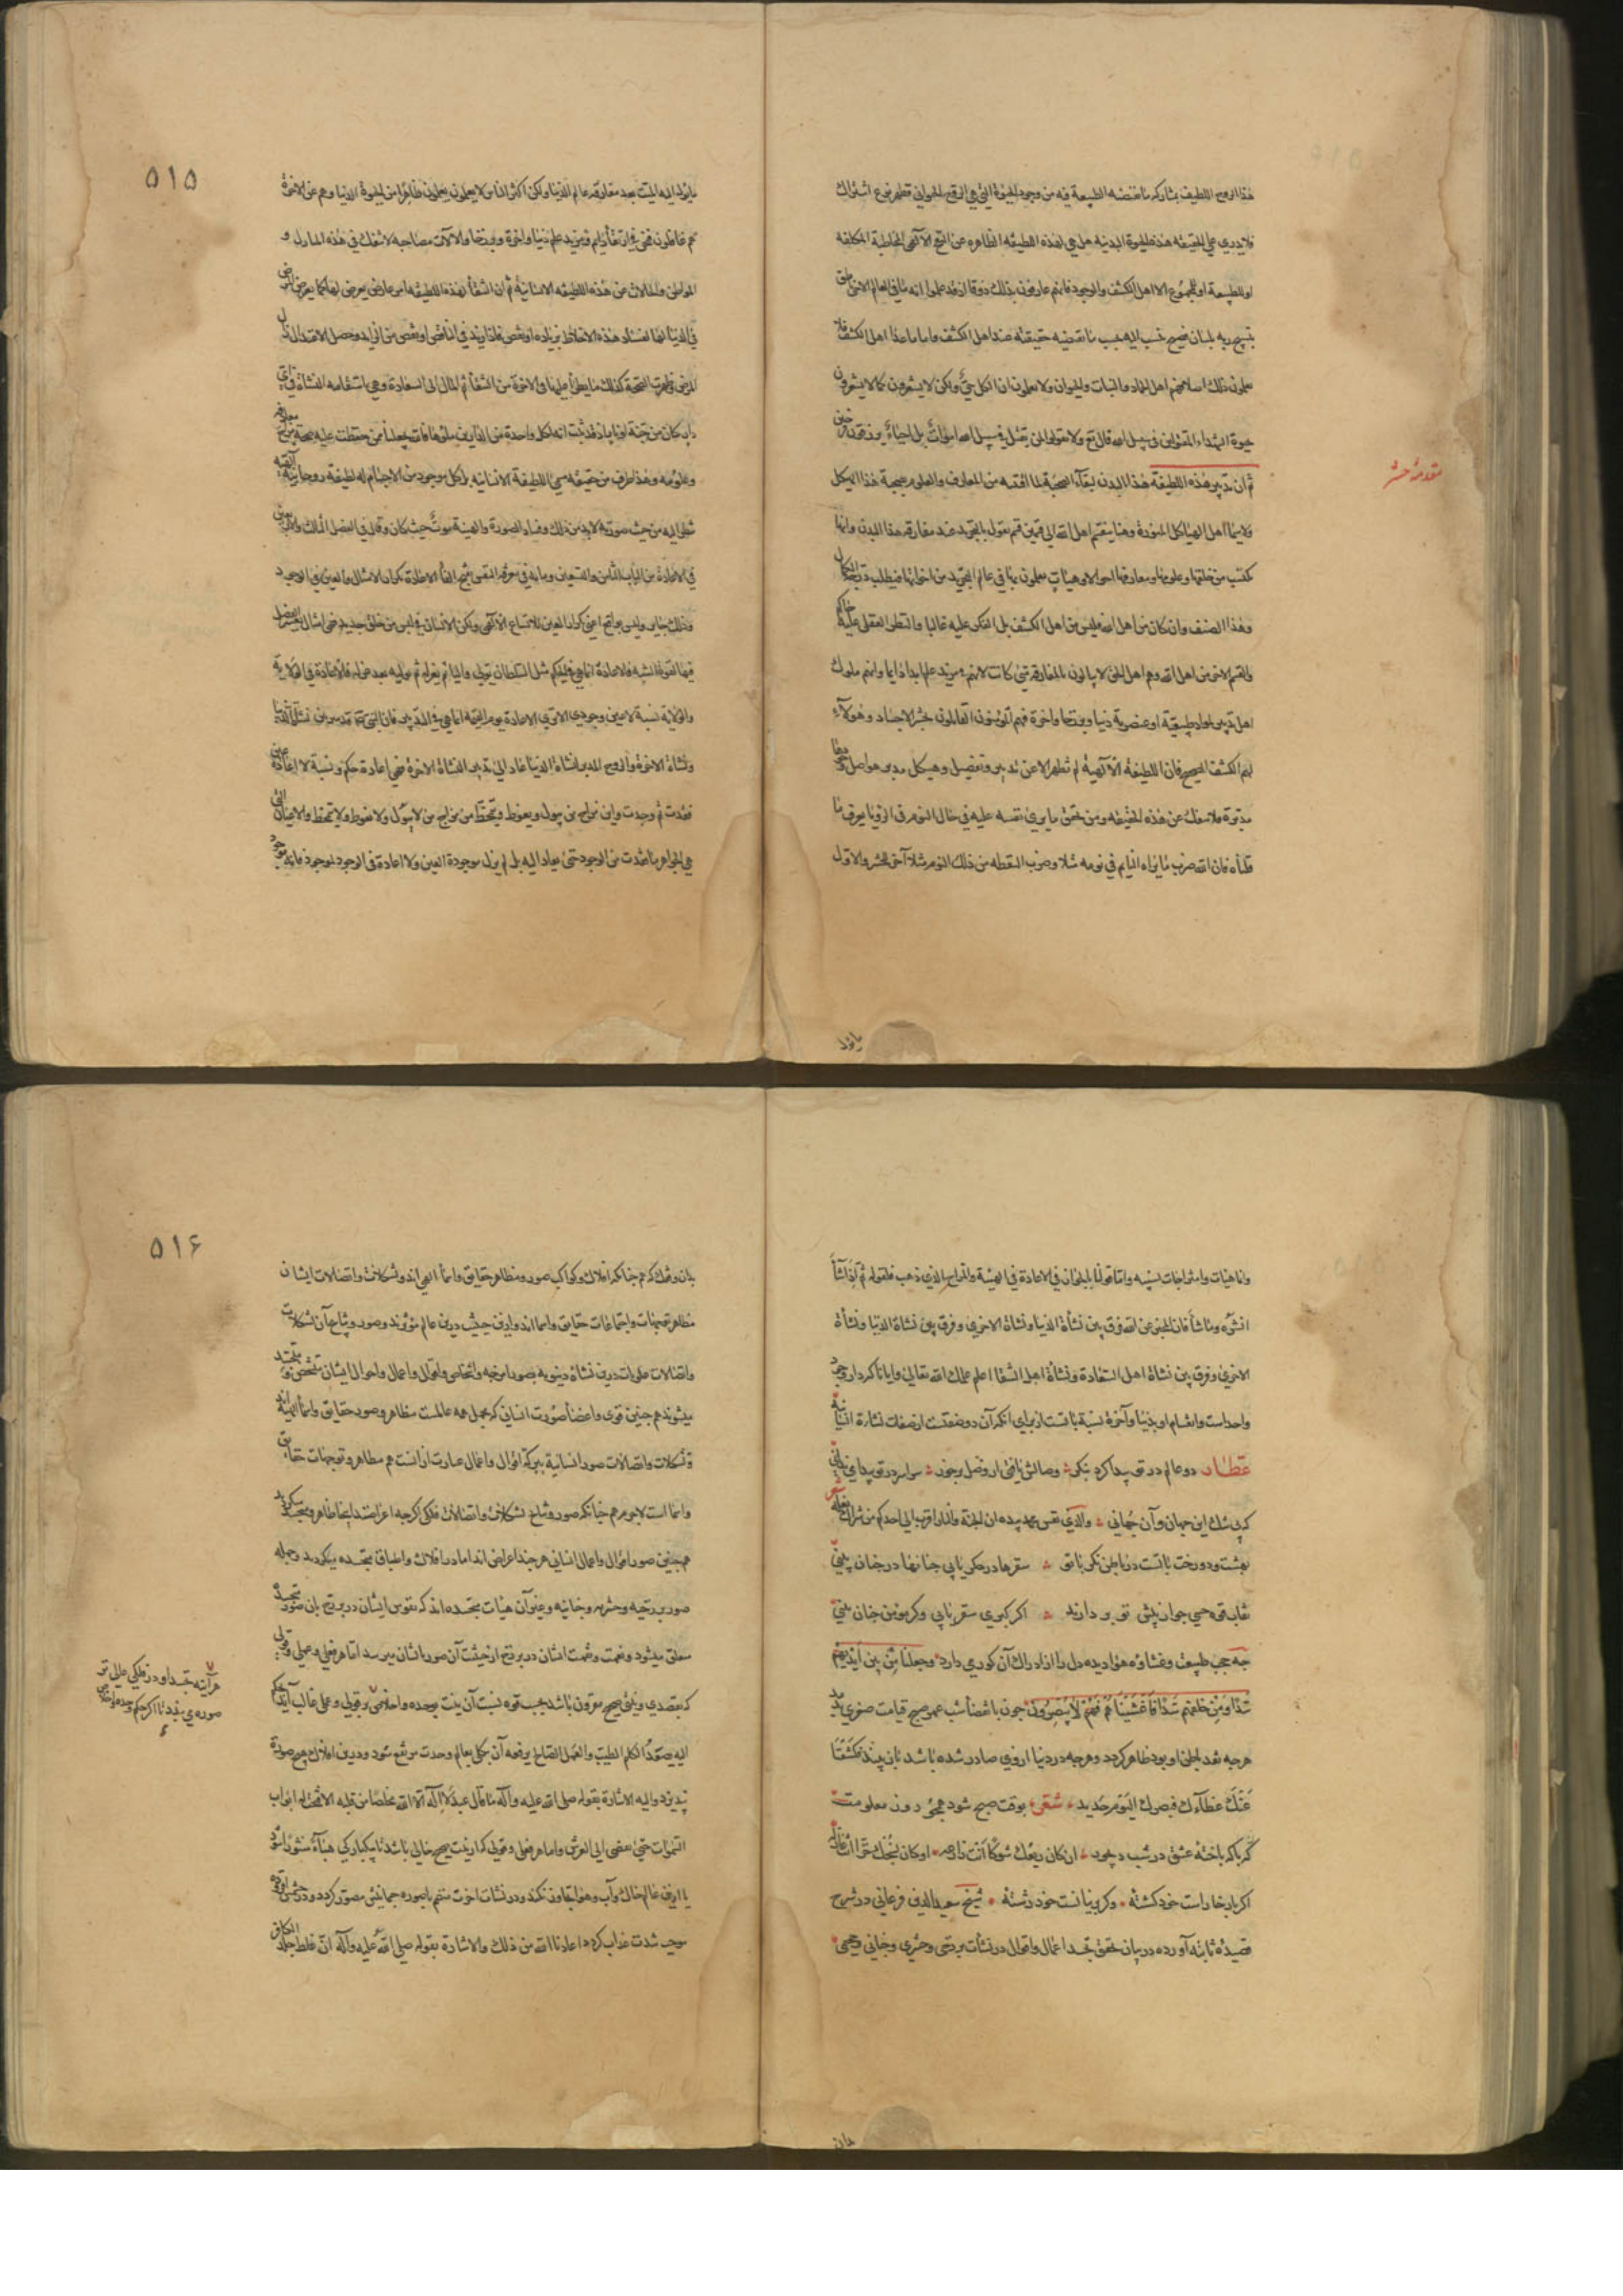 هذا الروح اللطيف بمشاركه ما تقتضيه الطبيعة فيه من وجود الحيوة التي هي الروح الحيواني فظهر نوع اشتراك
فلا يدري على الحقيقه هذه الحيوة البدنيه هل هي لهذه اللطيفه الظاهره عن النفخ الآلهي المخاطبة المكلفه
او للطبيعة او للمجموع الا اهل الكشف والوجود فانهم عارفون بذلك ذوقا اذ قد علموا انه ما في العالم الا حي ناطق
بتسبيح ربه بلسان فصيح ينسب اليه بحسب ما تقتضيه حقيقته عند اهل الكشف واما ما عدا اهل الكشف فلا
يعلمون ذلك اصلا فهم اهل الجماد والنبات والحيوان ولا يعلمون ان الكل حيّ ولكن لا يشعرون كما لا يشعرون
بحيوة الشهداء المقتولين في سبيل الله قال تع ولا تقولوا لمن يقتل في سبيل الله امواتٌ بل احياءٌ يرزقون فرحين
ثم ان تدبير هذه اللطيفة هذا البدن لبقآء الصحبة لما اقتنته من المعارف والعلوم بصحبة هذا الهيكل
ولا سيما اهل الهياكل المنورة وهنا ينقسم اهل الله الى قسمين قسم يقول بالتجريد عند مفارقه هذا البدن وانها
تكتسب من خلقها وعلومها ومعارفها احوالا وهيئاتٍ يعلمون بها في عالم التجريد من اخوانها فيطلب درجة الكمال
وهذا الصنف وان كان من اهل الله فليس من اهل الكشف بل الفكر عليه غالبا والنظر العقلى عليه حاكم
والقسم الاخر من اهل الله وهم اهل الحق لا يبالون بالمفارقه متى كانت لانهم في مزيد علم ابدا دايما وانهم ملوك
اهل تدبير لمواد طبيعيّة او عنصرية دنيا وبرزخا واخرة فهم المؤمنون القائلون بحشر الاجساد وهؤلآءِ
لهم الكشف الصحيح فان اللطيفة الآلهية لم تظهر الا عن تدبير وتفصيل وهيكل مدبر هو اصل وجودها
مدبّرة فلا تنفك عن هذه الحقيقه ومن تحقق ما يرى نفسه عليه في حال النوم في الرؤيا يعرف ما
قلناه فان الله ضرب ما يراه النايم في نومه مثلا وضرب اليقظه من ذلك النوم مثلا آخر للحشر والاول
مقدمهٔ حشر
۵۱۵
ما يؤل اليه الميت بعد مفارقه عالم الدنيا ولكن اكثر الناس لا يعلمون يعلمون ظاهرا من الحيوة الدنيا وهم عن الاخرة
هم غافلون فنحن في ارتقاءٍ دايم ومزيد علم دنيا واخرة وبرزخا والآلات مصاحبه لا تنفك في هذه المنازل و
المواطن والحالات عن هذه اللطيفه الانسانية ثم ان الشقآء لهذه اللطيفه امر عارض يعرض لها كما يعرض المرض
في الدنيا لها لفساد هذه الاخلاط بزياده او نقص فاذا زيد في الناقص او نقص من الزايد وحصل الاعتدال زال
المرض وظهرت الصحة كذلك ما يطرأ عليها في الاخرة من الشقآء ثم المآل الى السعادة وهي استقامه النشأة في اي
دار كان من جنة او نار اذ قد ثبت انه لكل واحدة من الدارين ملؤها فالله يجعلنا ممن حفظت عليه صحة مزاج معارفه
وعلومه وهذا طرف من حقيقه مسمى اللطيفة الانسانيه بل كل موجود من الاجسام له لطيفة روحانية الهية
تنظر اليه من حيث صورته لابد من ذلك وفساد الصورة والهيئة موتٌ حيث كان وقال في الفصل الثالث والاربعين
في الاعادة من الباب الثامن والتسعين ومايه في معرفه النفس بفتح الفآء الاعادة تكرار الامثال والعين في الوجود
وذلك جايز وليس بواقع اعني تكرار العين للاتساع الآلهي ولكن الانسان في لبس من خلق جديد فهي امثال يعسر الفصل
فيها لقوة الشبه فالاعادة انما هي في الحكم مثل السلطان يولي واليا ثم يعزله ثم يوليه بعد عزله فالاعادة في الولاية
والولاية نسبة لا عين وجودي الا ترى الاعادة يوم القيمة انما هي في التدبير فان النبي قد ميز بين نشأة الدنيا
ونشاة الاخرة والروح المدبر لنشاة الدنيا عاد الى تدبير النشاة الاخرة فهي اعادة حكم ونسبة لا اعادة عين
فقدت ثم وجدت واين مزاج من يبول ويغوط ويتمخّط من مزاج من لا يبول ولا يغوط ولا يتمخط والاعيان التي
هي الجواهر ما فقدت من الوجود حتى تعاد اليه بل لم يزل موجودة العين ولا اعادة في الوجود لموجود فانه موجود
وانما هيئات وامتزاجات نسبيه واما قولنا بالجواز في الاعادة في الهيئة والمزاج الذي ذهب فلقوله ثم اذا شآءَ
انشره وما شآءَ فان المخبر عن الله فرق بين نشأة الدنيا ونشأة الاخرى وفرق بين نشاة الدنيا ونشأة
الاخرى وفرق بين نشأة اهل السعادة ونشأة اهل الشقا اعلم علمك الله تعالى وايانا كه دار وجود
واحد است وانقسام او بدنيا وآخرة نسبة باتست از براي انكه آن دو صفتست از صفات نشاءة انسانيه
عطار دو عالم در تو پيدا كرد بنكر وصالش يافتى ار وصل برخور سراسر در تو پيدا مي نمايي
كه بي شك اين جهان و آن جهانى والذي نفس محمد بيده ان الجنة والنار اقرب الى احدكم من شراك نعله شعر
بهشت و دوزخت با تست در باطن نكر با تو سقرها در جكر يابي جنانها در جنان بينى
نقاب قوت حسي چو از پيش تو بر دارند اكر كبري سقر يابي وكر مومن جنان بيني
چه حجب طبيعت وغشاوهٔ هوا ديده دل را از ادراك آن كور مي دارد وجعلنا من بين ايديهم
سَدّا ومن خلفهم سَدّا فاغشيناهم فهم لا يبصرون چون با نقضا شب عمر صبح قيامت صغرى بدمد
هرچه نقد باطن او بود ظاهر كردد وهرچه در دنيا از وي صادر شده باشد بازبيند فكشفنا
عَنكَ غطآءك فبصرك اليوم حديد شعر بوقت صبح شود همچو روز معلومت
كه با كه باختهٔ عشق در شب ديجور
اكر بار خار است خود كشتهٔ وكر پرنيانست خود رشتهٔ شيخ سعيد الدين فرغاني در شرح
قصيدهٔ تائيه آورده در بيان تحقق تجسد اعمال واقوال در نشآت برزخي وحشري وجناني وجحيمي
بدان
۵۱۶
بدان وفقك كه همچنانكه افلاك وكواكب صور ومظاهر حقايق واسمآء الهي اند وتشكلات واتصالات ايشان
مظاهر توجهات واجتماعات حقايق واسما اند وازين حيثيت درين عالم مؤثرند وصور ونتايج آن تشكلات
واتصالات علويات درين نشاة دنيويه بصور امزجه واشخاص واقوال واعمال واحوال ايشان متشخص ومتجسد
ميشوند همچنين قوى واعضاء صورت انسانى كه مجمل همه عالمست مظاهر وصور حقايق واسمآء الهيه اند
وتشكلات واتصالات صور انسانية بهركه اقوال واعمال عبارت از انست هم مظاهر وتوجهات حقايق
واسما است لاجرم هم چنانكه صور ونتايج تشكلات واتصالات فلكي اكرچه اعراضند اينجا ظاهر ومتجسد ميكردند
همچنين صور اقوال واعمال انساني هرچند اعراض اند اما در افلاك واطباق متجسده ميكردند وجمله
صور برزخيه وحشريه وجنانيه وغير آن هيآت متجسده اند كه نفوس ايشان در برزخ بان صور متجسده
متعلق ميشود ونعمت ونقمت ايشان در برزخ از حيثيت آن صور بايشان ميرسد اما هر فعلي وعملي وقولى
كه بقصدي ونيتي صحيح مقرون باشد بحسب قوه نسبت آن نيت بوحده واخلاص بر قولى وعمل غالب آيد بحكم
اليه يصعد الكلم الطيب والعمل الصالح يرفعه آن بكلي بعالم وحدت مرتفع شود ودرين افلاك هيچ صورة
نپذيرد واليه الاشارة بقوله صلى الله عليه وآله ما قال عبد لا اله الا الله مخلصا من قلبه الا فتحت له ابواب
السموات حتى تفضى الى العرش واما هر فعلي وقولي كه از نيت صحيح خالي باشد تا بيكبارگي هبآء منثورا شود
يا ازين عالم خاك وآب وهوا تجاوز نكند ودر نشات اخرت منضم باصوره جسمانيش مصور كردد ودر حق او
موجب شدت عذاب كردد اعاذنا الله من ذلك والاشارة بقوله صلى الله عليه وآله انّ غلظ جلد الكافر
هر آينه تجسد او در فلكي عالى تر